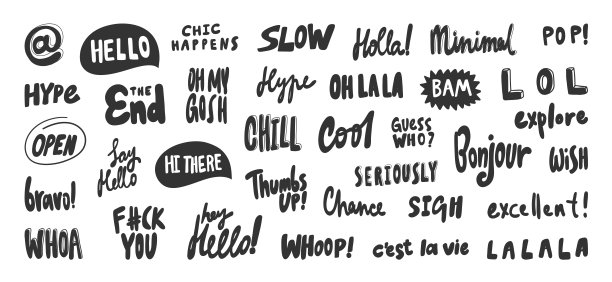 @
HELLO
CHIC
HAPPENS
SLOW
Holla!
Minimal
POP!
HYPe
THE
End
OH MY
GOSH
Hype
OH LALA
BAM
LOL
explore
OPEN
Say
Hello
HI THERE
CHILL
Cool
GUESS
WHO?
Bonjour
WiSH
bravo!
Thumbs
UP!
SERIOUSLY
Chance
SIGH
excellent!
WHOA
F#CK
YOU
hey
Hello!
WHOOP!
c'est la vie
LALALA